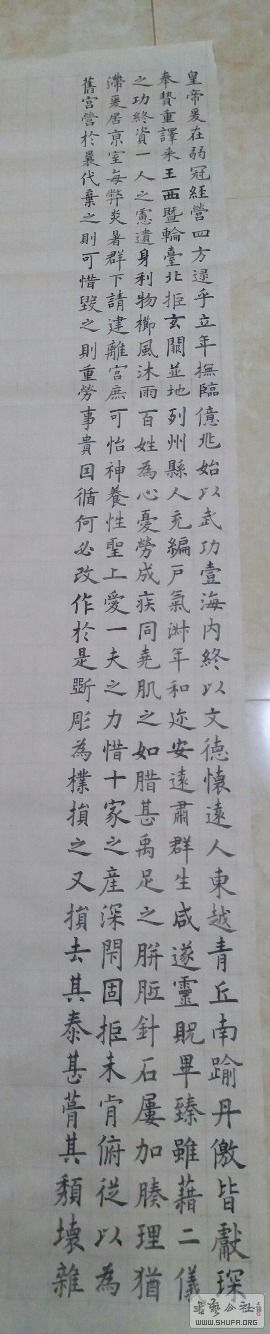 皇帝爰在弱冠經營四方逮乎立年撫臨億兆始以武功壹海内終以文德懷遠人東越青丘南踰丹儌皆獻琛
奉贄重譯來王西暨輪臺北拒玄闕並地列州縣人充編戶氣淑年和迩安遠肅群生咸遂靈貺畢臻雖藉二儀
之功終資一人之慮遺身利物櫛風沐雨百姓為心憂勞成疾同堯肌之如腊甚禹足之胼胝針石屢加腠理猶
滯爰居京室每弊炎暑群下請建離宮庶可怡神養性聖上愛一夫之力惜十家之産深閇固拒未肯俯從以為
舊宮營於曩代棄之則可惜毀之則重勞事貴因循何必改作於是斲彫為樸損之又損去其泰甚葺其頹壞雜
書藝公社
WWW.SHUFA.ORG